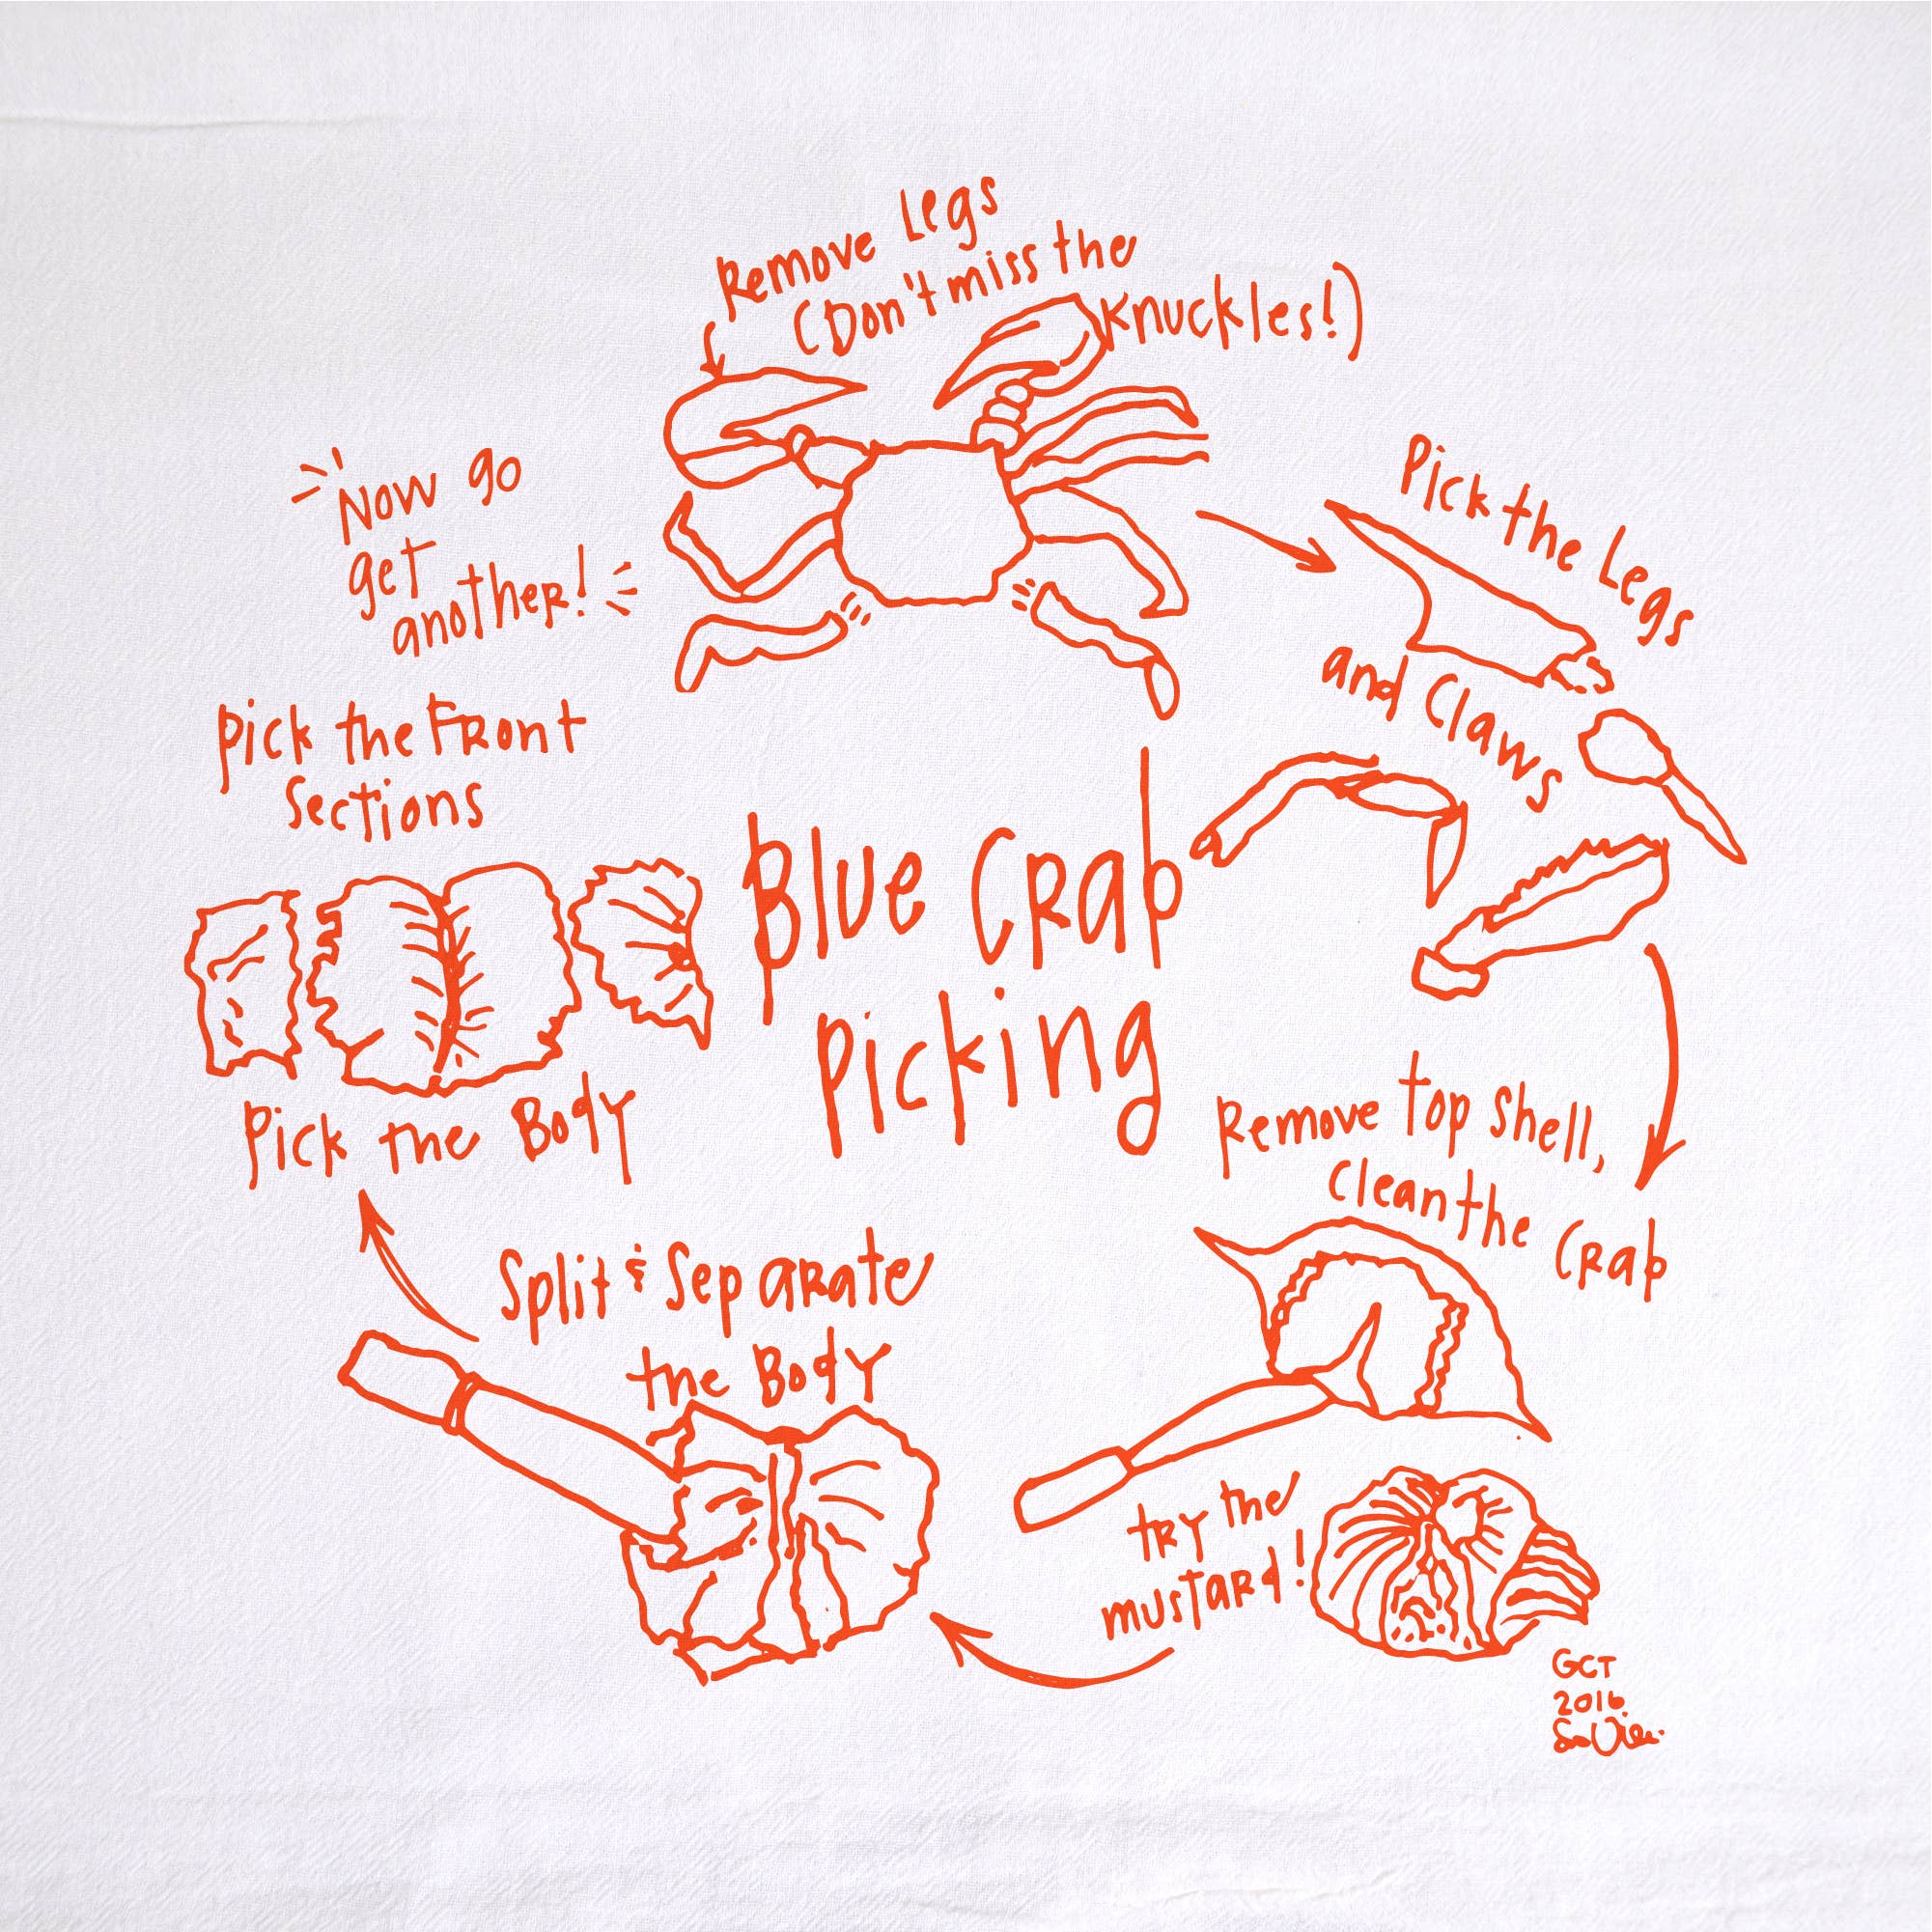 Blue Crab
Picking
Remove Legs
(Don't miss the
Knuckles!)
Pick the Legs
and Claws
Remove top shell,
Clean the Crab
try the
mustard!
Split & Separate
the Body
Pick the Body
Pick the Front
Sections
Now go
get
another!
GCT
2016